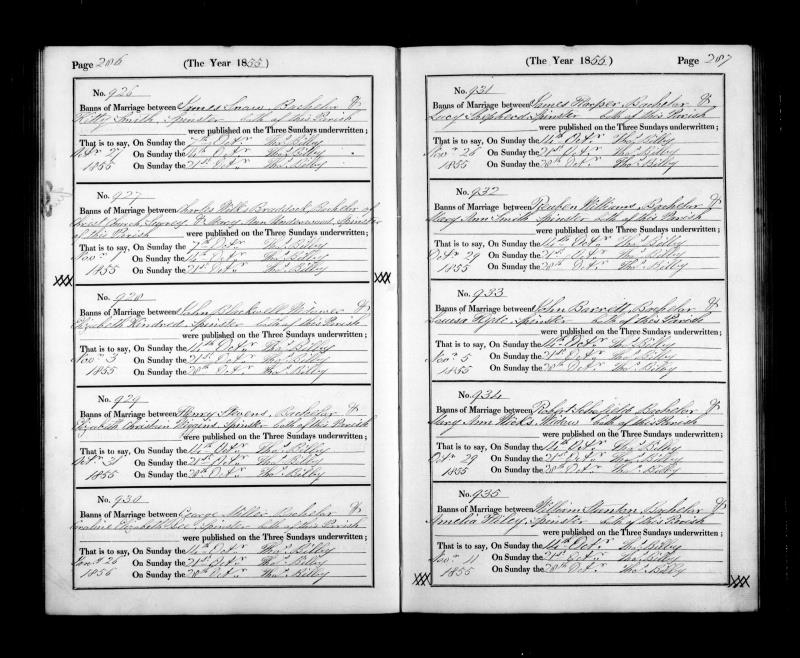 Page 286 (The Year 1855)
No. 926
Banns of Marriage between James Snow, Bachelor &
Kitty Smith, Spinster both of this Parish
were published on the Three Sundays underwritten;
That is to say, On Sunday the 7th Octr Thos. Bilby
On Sunday the 14th Octr Thos. Bilby
1855 On Sunday the 21st Octr Thos. Bilby
No. 927
Banns of Marriage between Charles Braddock, Bachelor of
Christ Church & Mary Ann Spinster
of this Parish were published on the Three Sundays underwritten;
That is to say, On Sunday the 7th Octr Thos. Bilby
Novr On Sunday the 14th Octr Thos. Bilby
1855 On Sunday the 21st Octr Thos. Bilby
No. 928
Banns of Marriage between John Blackwell, Widower &
Elizabeth Kindred, Spinster both of this Parish
were published on the Three Sundays underwritten;
That is to say, On Sunday the 14th Octr Thos. Bilby
Novr 3 On Sunday the 21st Octr Thos. Bilby
1855 On Sunday the 28th Octr Thos. Bilby
No. 929
Banns of Marriage between Henry Stevens, Bachelor &
Elizabeth Christian Higgins, Spinster both of this Parish
were published on the Three Sundays underwritten;
That is to say, On Sunday the 14th Octr Thos. Bilby
Octr 31 On Sunday the 21st Octr Thos. Bilby
1855 On Sunday the 28th Octr Thos. Bilby
No. 930
Banns of Marriage between George Miller, Bachelor &
Caroline Elizabeth Lee, Spinster both of this Parish
were published on the Three Sundays underwritten;
That is to say, On Sunday the 14th Octr Thos. Bilby
On Sunday the 21st Octr Thos. Bilby
1856 On Sunday the 28th Octr Thos. Bilby
(The Year 1855) Page 287
No. 931
Banns of Marriage between James Hooper, Bachelor &
Lucy Shepherd, Spinster both of this Parish
were published on the Three Sundays underwritten;
That is to say, On Sunday the 14th Octr Thos. Bilby
Novr 26 On Sunday the 21st Octr Thos. Bilby
1855 On Sunday the 28th Octr Thos. Bilby
No. 932
Banns of Marriage between Reuben Williams, Bachelor &
Mary Ann Smith Spinster both of this Parish
were published on the Three Sundays underwritten;
That is to say, On Sunday the 14th Octr Thos. Bilby
Octr 29 On Sunday the 21st Octr Thos. Bilby
1855 On Sunday the 28th Octr Thos. Bilby
No. 933
Banns of Marriage between John Barrett, Bachelor &
Louisa Spinster both of this Parish
were published on the Three Sundays underwritten;
That is to say, On Sunday the 14th Octr Thos. Bilby
Novr 5 On Sunday the 21st Octr Thos. Bilby
1855 On Sunday the 28th Octr Thos. Bilby
No. 934
Banns of Marriage between Robert Schofield Bachelor &
Mary Ann Wicks, Widow both of this Parish
were published on the Three Sundays underwritten;
That is to say, On Sunday the 14th Octr Thos. Bilby
Octr 29 On Sunday the 21st Octr Thos. Bilby
1855 On Sunday the 28th Octr Thos. Bilby
No. 935
Banns of Marriage between William Stanton, Bachelor &
Amelia Wiley, Spinster both of this Parish
were published on the Three Sundays underwritten;
That is to say, On Sunday the 14th Octr Thos. Bilby
Novr 11 On Sunday the 21st Octr Thos. Bilby
1855 On Sunday the 28th Octr Thos. Bilby